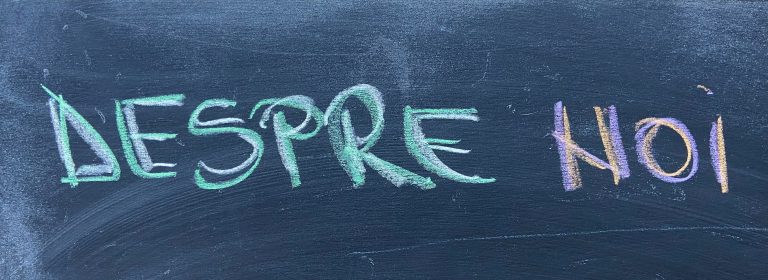 DESPRE NOi